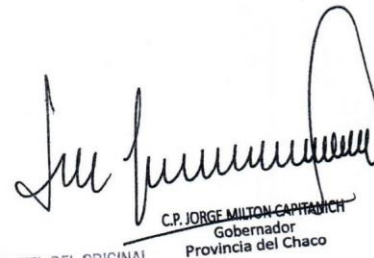 C.P. JORGE MILTON CAPITANICH
Gobernador
Provincia del Chaco
DEL ORIGINAL